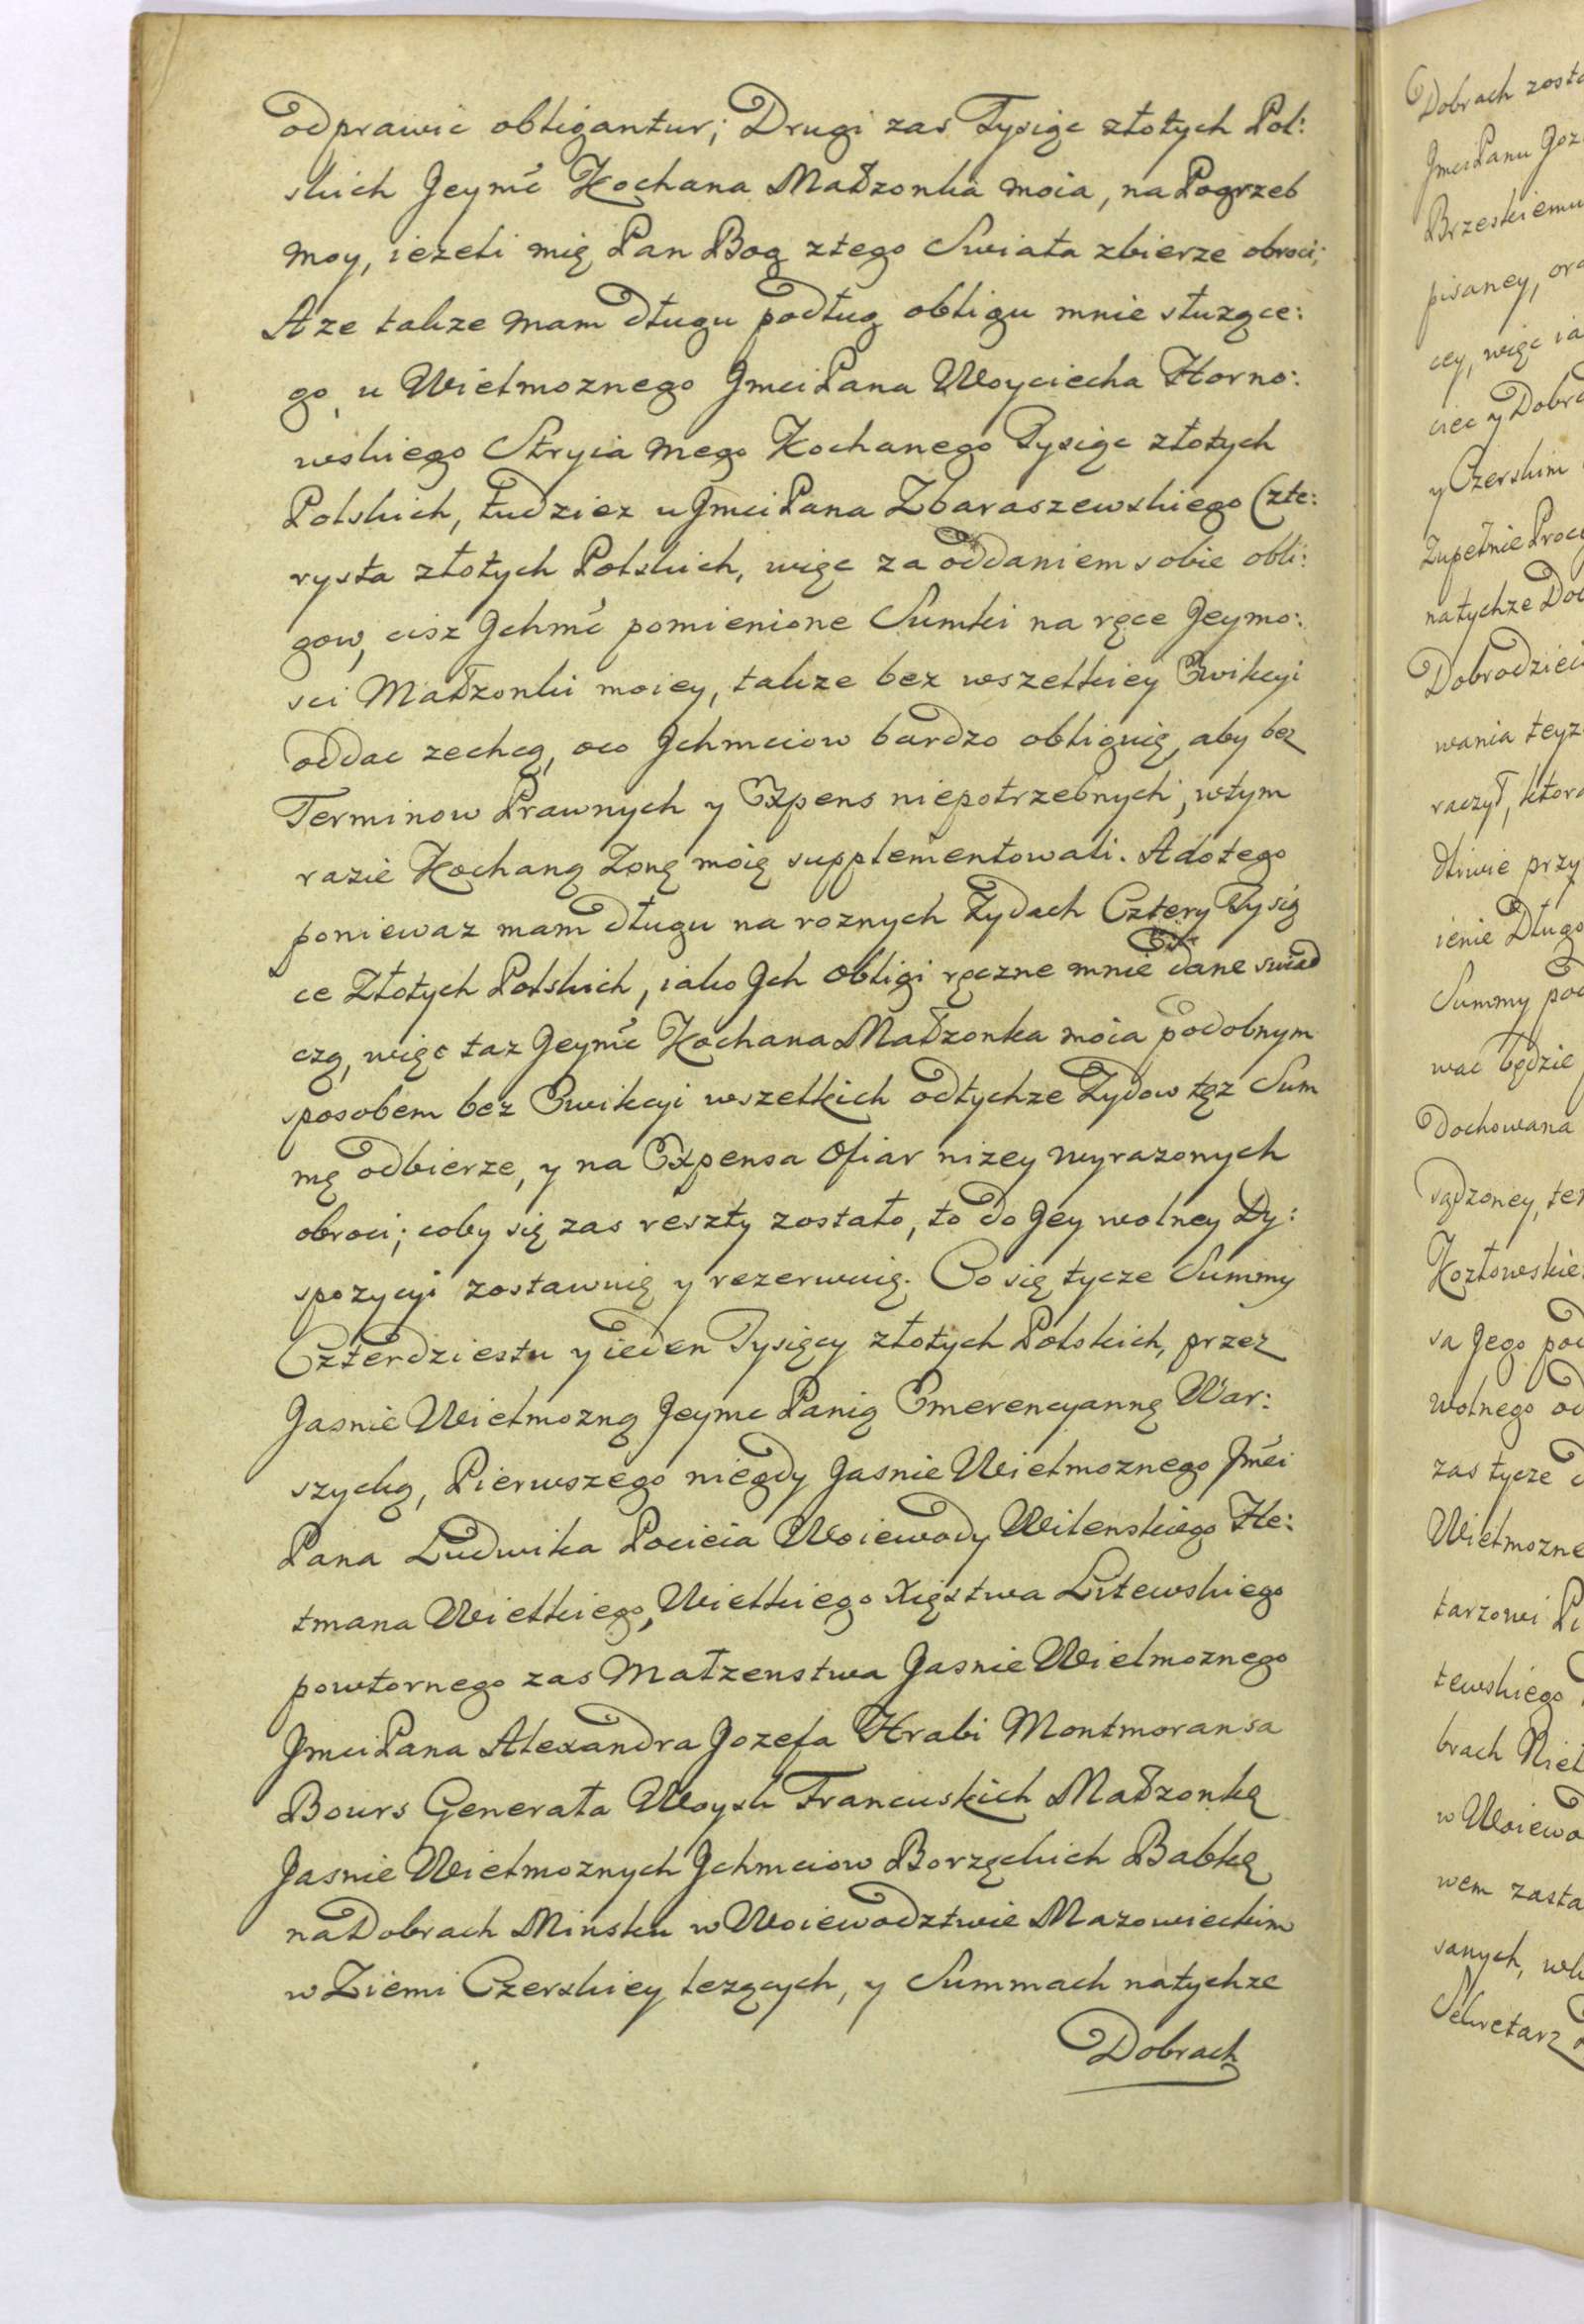 odprawić obligantur; Drugi zas Tysiąc złotych Pol:
skich Jeymć Kochana Małżonka moia, na Pogrzeb
moy, ieżeli mię Pan Bog ztego Swiata zbierze obroci;
A że także mam długu podług obligu mnie służące:
go, u Wielmoznego JmciPana Woyciecha Horno:
wskiego Stryia mego Kochanego Tysiąc złotych
Polskich, tudziez u JmciPana Zbaraszewskiego Czte:
rysta złotych Polskich, więc za oddaniem sobie obli:
gow, cisz Jchmć pomienione Sumki na ręce Jeymo:
sci Małżonki moiey, także bez wszelkiey Ewikcyi
oddac zechcą, oco Jchmciow bardzo obliguię, aby bez
Terminow Prawnych y Expens niepotrzebnych, wtym
razie Kochaną Zonę moię supplementowali. A dotego
poniewaz mam długu na roznych Zydach Cztery Tysią
ce Złotych Polskich, iako Jch obligi ręczne mnie dane swiad
czą, więc taz Jeymć Kochana Małżonka moia podobnym
sposobem bez Ewikcyi wszelkich odtychze Zydow tęz Sum
mę odbierze, y na Expensa Ofiar nizey wyrazonych
obroci; coby się zas reszty zostało, to do Jey wolney Dy:
spozycyi zostawuię y rezerwuię. Co się tycze Summy
Czterdziestu y ieden Tysięcy złotych Polskich, przez
Jasnie Wielmozną Jeymc Panią Emerencyannę War:
szycką, Pierwszego niegdy Jasnie Wielmoznego Jmći
Pana Ludwika Pocieia Woiewody Wilenskiego He:
tmana Wielkiego, Wielkiego Xięstwa Litewskiego
powtornego zas Małzenstwa Jasnie Wielmoznego
JmciPana Alexandra Jozefa Hrabi Montmoransa
Bours Generała Woysk Francuskich Małżonkę
Jasnie Wielmoznych Jchmciow Borzęckich Babkę
na Dobrach Minsku w Woiewodztwie Mazowieckim
w Ziemi Czerskiey lezących, y Summach natychze
Dobrach
Dobrach
JmciPanu
Brzeskiemu
pisaney,
cey, więc ia
y Czerskim
Zupełnie
natychze
wania teyz
raczył,
dliwie przy
ienie Długo
Summy
wac będzie
Dochowana
sądzoney,
sa Jego
wolnego
zas tycze
tarzowi
tewskiego
brach
wem
sanych,
Sekretarz